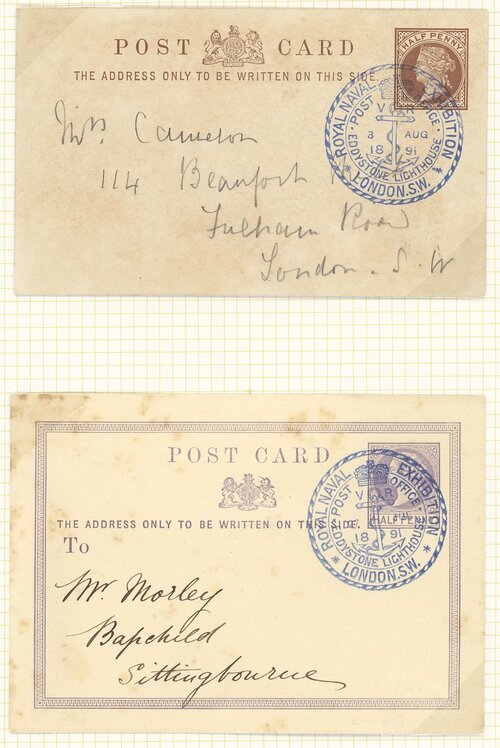 POST CARD
THE ADDRESS ONLY TO BE WRITTEN ON THIS SIDE.
HALF PENNY
ROYAL NAVAL EXHIBITION
POST OFFICE
V R
3 AUG
18 91
EDDYSTONE LIGHTHOUSE
* LONDON.S.W. *
Mrs Cameron
114 Beaufort
Fulham Road
London. S. W
POST CARD
THE ADDRESS ONLY TO BE WRITTEN ON THIS SIDE.
HALF PENNY
ROYAL NAVAL EXHIBITION
POST OFFICE
V R
18 91
EDDYSTONE LIGHTHOUSE
* LONDON.S.W. *
To
Mr. Morley
Bapchild
Sittingbourne